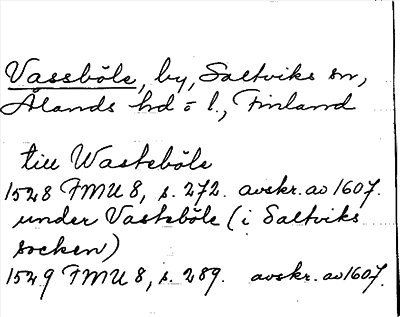 Vassböle, by, Saltviks sn,
Ålands hd o l., Finland
till Wasteböle
1528 FMU 8, s. 272. avskr. av 1607.
under Vasteböle (i Saltviks
socken)
1549 FMU 8, s. 289. avskr. av 1607.